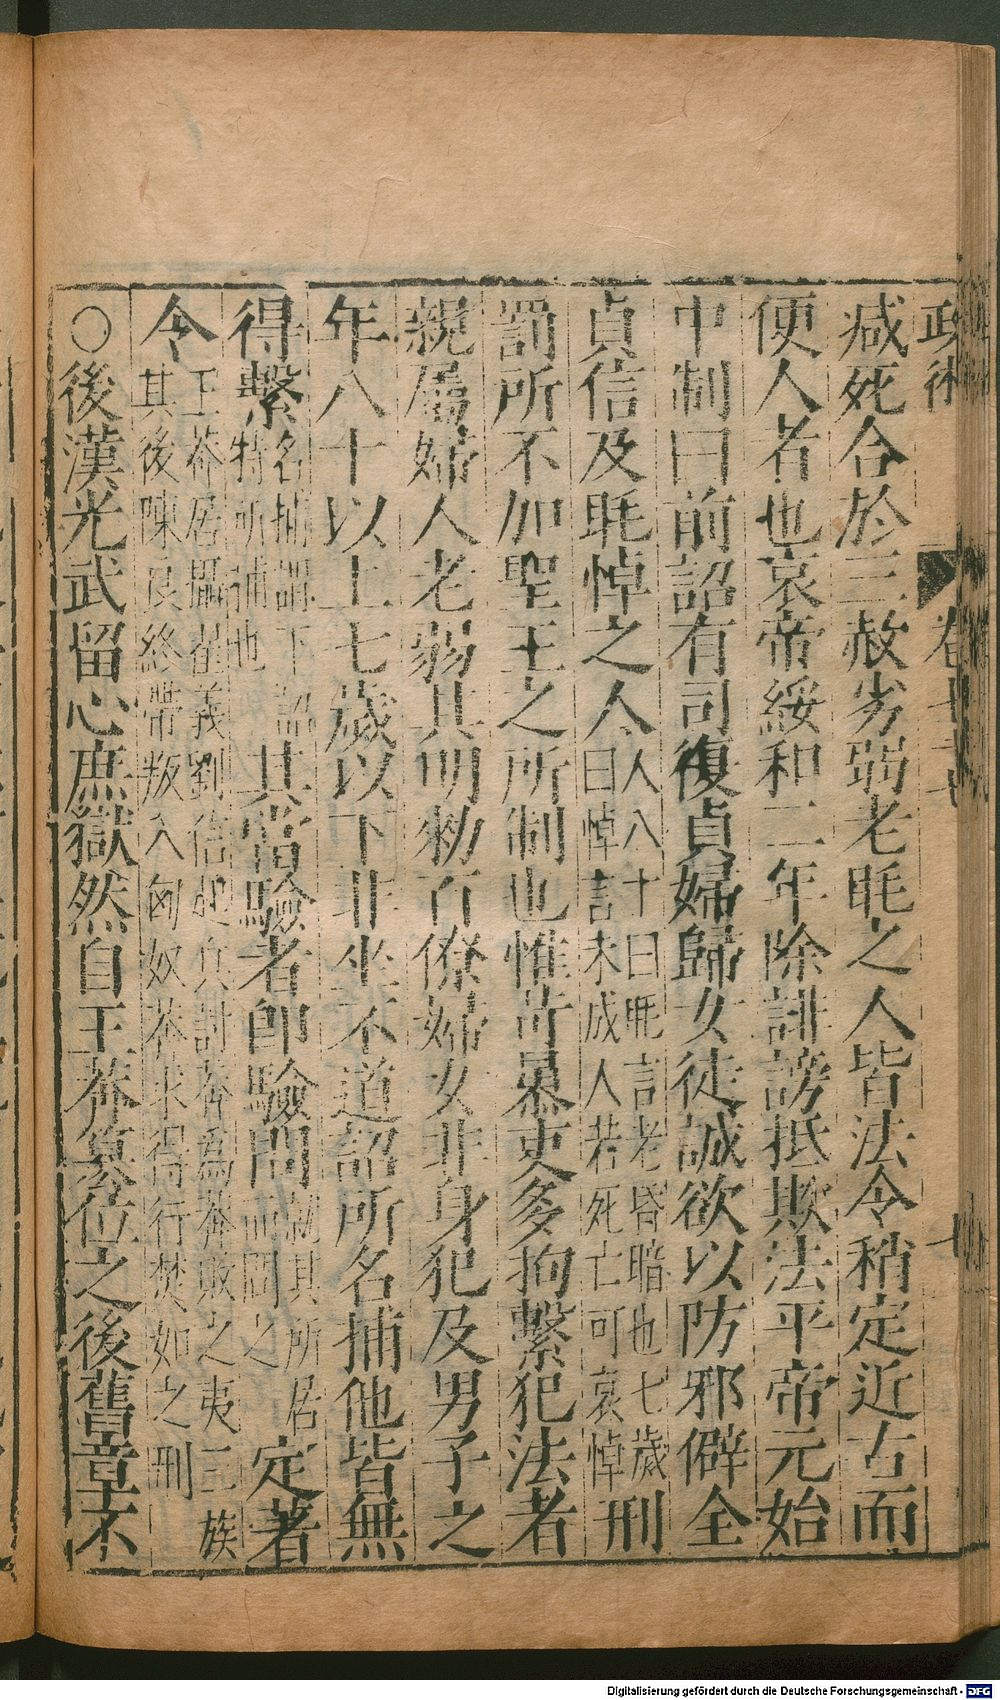 政術 卷十
减死合於三赦劣弱老眊之人皆法令稍定近古而
便人者也哀帝綏和二年除誹謗抵欺法平帝元始
中制曰前詔有司復貞婦歸女徒誠欲以防邪僻全
貞信及眊悼之人人八十曰眊言老昏暗也七歲曰悼言未成人若死亡可哀悼刑
罰所不加聖王之所制也惟苛暴吏多拘繫犯法者
親屬婦人老弱其明勑百僚婦女非身犯及男子之
年八十以上七歲以下非坐不道詔所名捕他皆無
得繫名捕謂下詔特所捕也其當驗者即驗問就其所居而問之定著
令王莽居攝翟義劉信起兵討莽爲莽敗之夷三族其後陳良終帶叛入匈奴莽求得行焚如之刑
○後漢光武留心庶獄然自王莽篡位之後舊章不
Digitalisierung gefördert durch die Deutsche Forschungsgemeinschaft - DFG